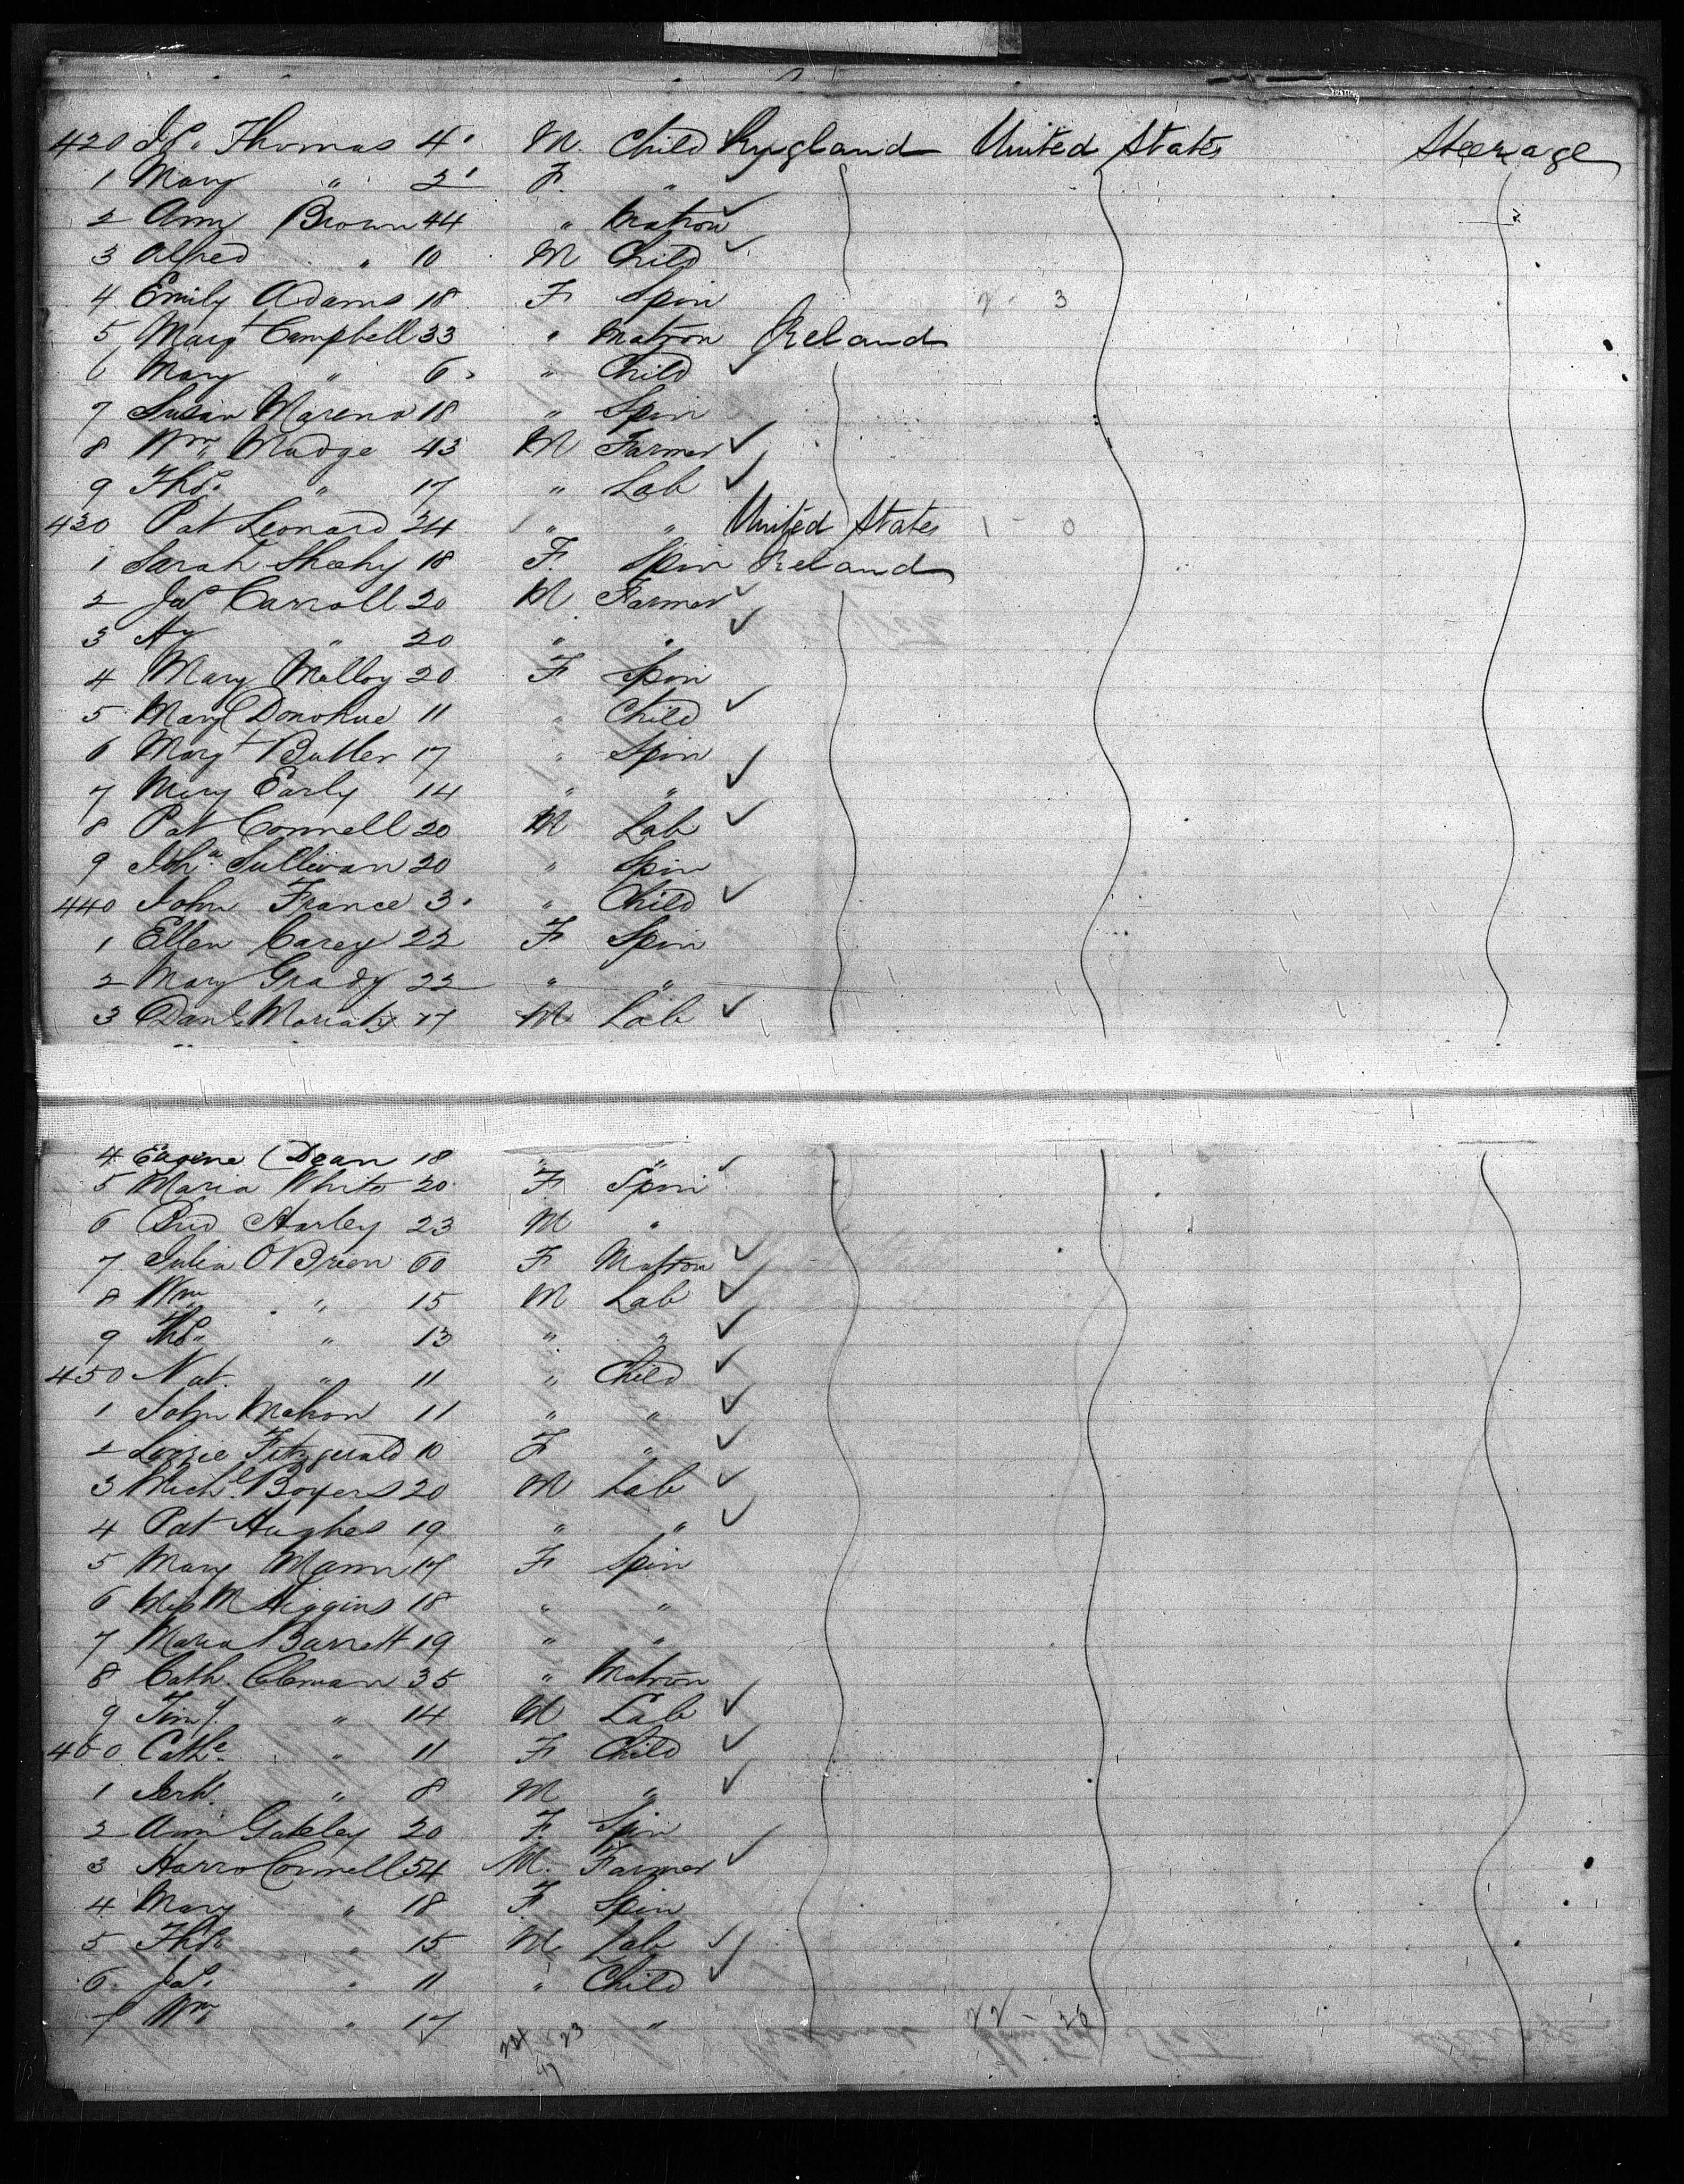 420 Js. Thomas 4 M. Child England United States Steerage
1 Mary " 2 F. "
2 Ann Brown 44 " Matron
3 Alfred " 10 M Child
4 Emily Adams 18 F Spin 2 - 3
5 Margt Campbell 33 " Matron Ireland
6 Mary " 6 " Child
7 Susan 18 " Spin
8 Wm Madge 43 M Farmer
9 Thos. " 17 " Lab
430 Pat Leonard 24 " " United States 1 - 0
1 Sarah Sheehy 18 F. Spin Ireland
2 Jas Carroll 20 M Farmer
3 Hy " 20 " "
4 Mary Molloy 20 F Spin
5 Mary Donohue 11 " Child
6 Margt Butler 17 " Spin
7 Mary Early 14 " "
8 Pat Connell 20 M Lab
9 Sullivan 20 " Spin
440 John France 3 " Child
1 Ellen Carey 22 F Spin
2 Mary Grady 22 " "
3 Danl. Moriaty 17 M Lab
4 Eugene Dean 18 " "
5 Maria White 20 F. Spin
6 Brid Harley 23 M "
7 Julia O'Brien 60 F Matron
8 Wm " 15 M Lab
9 Thos. " 13 " "
450 Nat. " 11 " Child
1 John Mahon 11 " "
2 Lizzie Fitzgerald 10 F "
3 Michl. Boyers 20 M Lab
4 Pat Hughes 19 " "
5 Mary Mann 17 F Spin
6 M Higgins 18 " "
7 Maria Barrett 19 " "
8 Cath. Coleman 35 " Matron
9 Timy. " 14 M Lab
460 Cathe. " 11 F Child
1 Jerh. " 8 M "
2 Ann Gateley 20 F. Spin
3 Connell 54 M. Farmer
4 Mary " 18 F Spin
5 Thos. " 15 M Lab
6 Jas. " 11 " Child
7 Wm " 17 " 22 - 20
24 23
47